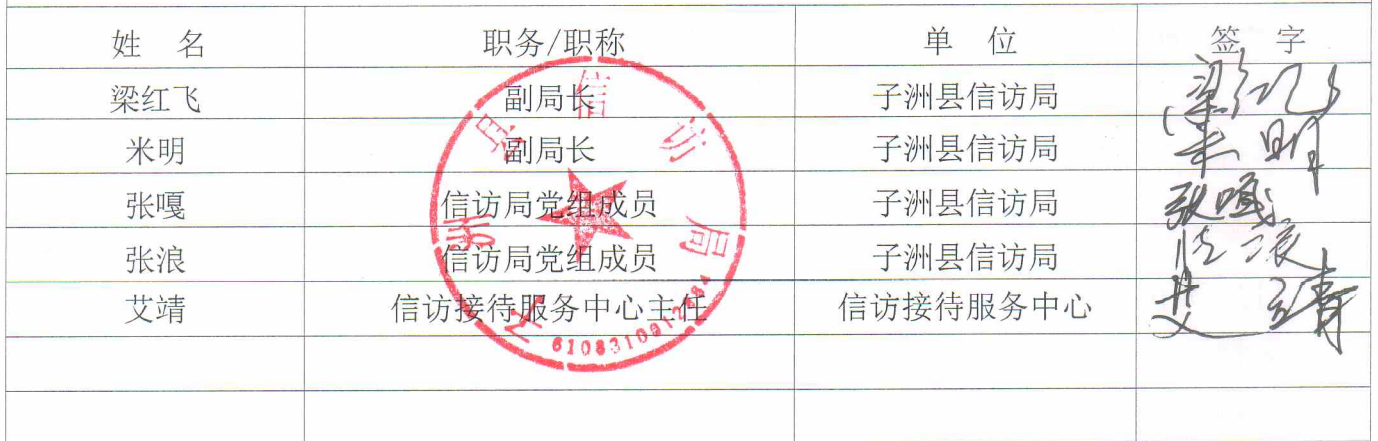 姓 名 职务/职称 单 位 签 字
梁红飞 副局长 子洲县信访局 梁红飞
米明 副局长 子洲县信访局 米明
张嘎 信访局党组成员 子洲县信访局 张嘎
张浪 信访局党组成员 子洲县信访局 张浪
艾靖 信访接待服务中心主任 信访接待服务中心 艾靖
子洲县信访局